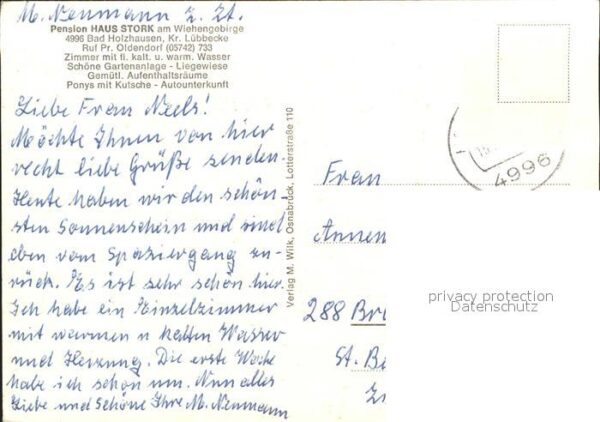 M. Neumann z. Zt.
Pension HAUS STORK am Wiehengebirge
4996 Bad Holzhausen, Kr. Lübbecke
Ruf Pr. Oldendorf (05742) 733
Zimmer mit fl. kalt. u. warm. Wasser
Schöne Gartenanlage - Liegewiese
Gemütl. Aufenthaltsräume
Ponys mit Kutsche - Autounterkunft
Liebe Frau Neels!
Möchte Ihnen von hier
recht liebe Grüße senden.
Heute haben wir den schön-
sten Sonnenschein und sind
eben vom Spaziergang zu-
rück. Es ist sehr schön hier.
Ich habe ein Einzelzimmer
mit warmen u kalten Wasser
und Heizung. Die erste Woche
habe ich schon um. Nun alles
Liebe und Schöne Ihre M. Neumann
Verlag M. Wilk, Osnabrück, Lotterstraße 110
4996
Frau
Annen
288 Br
St. B
privacy protection
Datenschutz